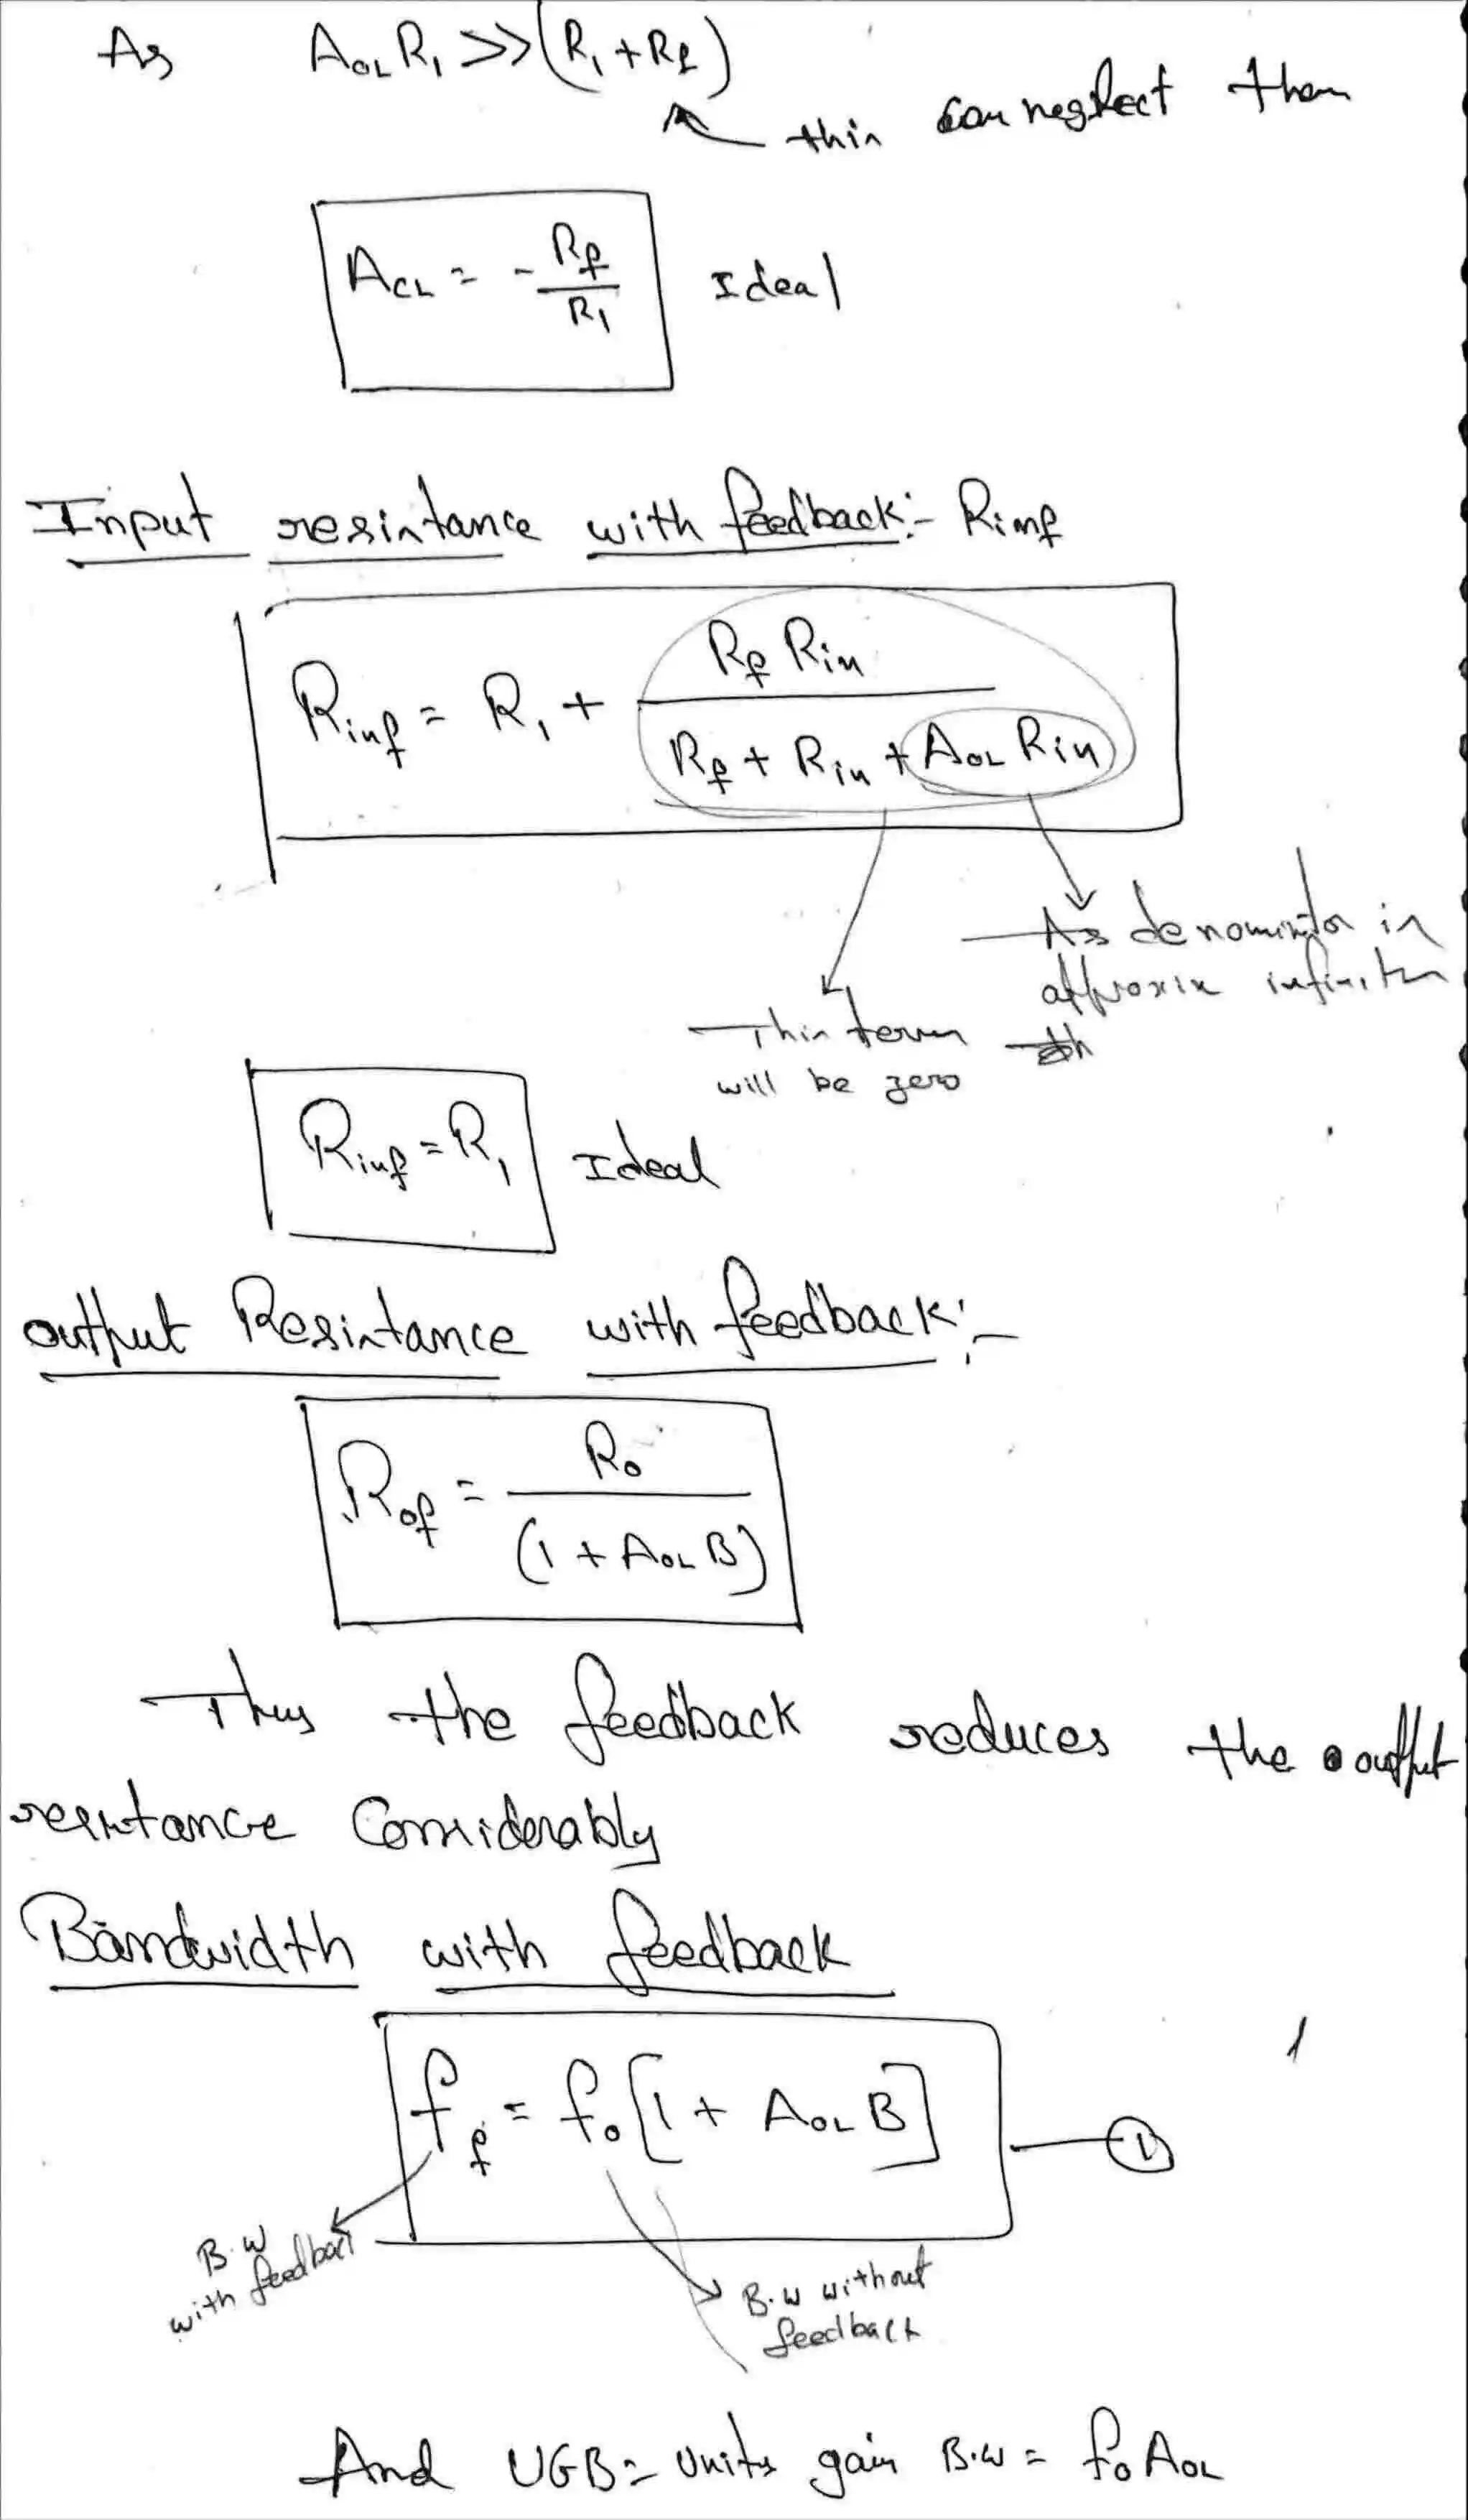 As A_OL R_1 >> (R_1 + R_f)
this can neglect then
A_CL = - R_f / R_1 Ideal
Input resistance with feedback:- R_inf
R_inf = R_1 + R_f R_in / (R_f + R_in + A_OL R_in)
As denominator is
approxix infinite
This term
will be zero
R_inf = R_1 Ideal
output Resistance with feedback:-
R_of = R_o / (1 + A_OL B)
Thus the feedback reduces the output
resistance Considerably
Bandwidth with feedback
f_f = f_o [1 + A_OL B] — 1
B.W
with feedback
B.W without
feedback
And UGB = Unity gain B.W = f_o A_OL